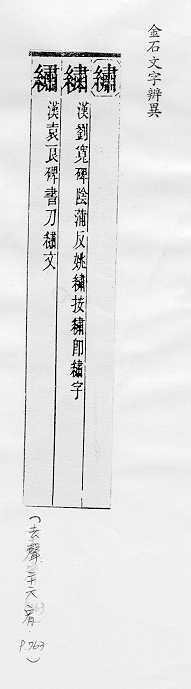 金石文字辨異
繡
繍 漢劉寬碑陰蒲反姚繡按繍即繡字
漢袁良碑書刀繡文
(去聲 宥. P.763)